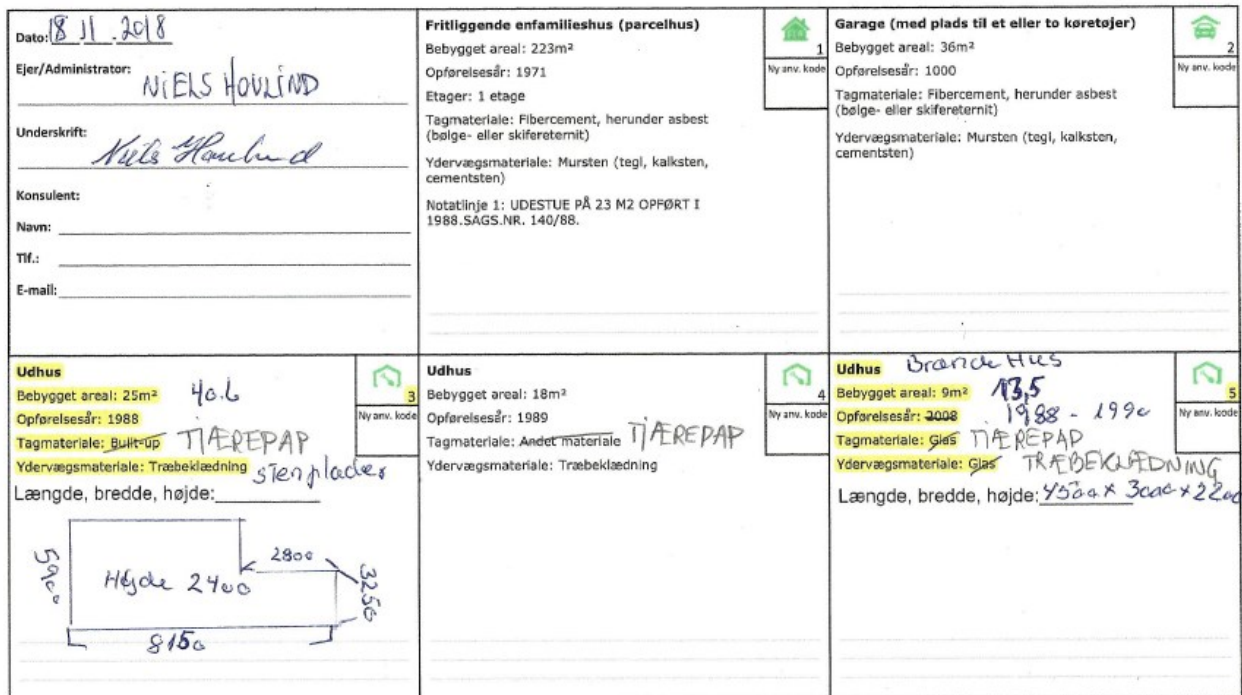 Dato: 18 11 . 2018
Ejer/Administrator:
NIELS HOVLIND
Underskrift:
Konsulent:
Navn:
Tlf.:
E-mail:
Fritliggende enfamilieshus (parcelhus)
1
Ny anv. kode
Bebygget areal: 223m²
Opførelsesår: 1971
Etager: 1 etage
Tagmateriale: Fibercement, herunder asbest
(bølge- eller skifereternit)
Ydervægsmateriale: Mursten (tegl, kalksten,
cementsten)
Notatlinje 1: UDESTUE PÅ 23 M2 OPFØRT I
1988.SAGS.NR. 140/88.
Garage (med plads til et eller to køretøjer)
2
Ny anv. kode
Bebygget areal: 36m²
Opførelsesår: 1000
Tagmateriale: Fibercement, herunder asbest
(bølge- eller skifereternit)
Ydervægsmateriale: Mursten (tegl, kalksten,
cementsten)
Udhus
3
Ny anv. kode
Bebygget areal: 25m² 40.6
Opførelsesår: 1988
Tagmateriale: Built-up TJÆREPAP
Ydervægsmateriale: Træbeklædning stenplader
Længde, bredde, højde:
5900
Højde 2400
2800
3250
8150
Udhus
4
Ny anv. kode
Bebygget areal: 18m²
Opførelsesår: 1989
Tagmateriale: Andet materiale TJÆREPAP
Ydervægsmateriale: Træbeklædning
Udhus Brænde Hus
5
Ny anv. kode
Bebygget areal: 9m² 13,5
Opførelsesår: 2008 1988 - 1990
Tagmateriale: Glas TJÆREPAP
Ydervægsmateriale: Glas TRÆBEKLÆDNING
Længde, bredde, højde: 4500 x 3000 x 2200